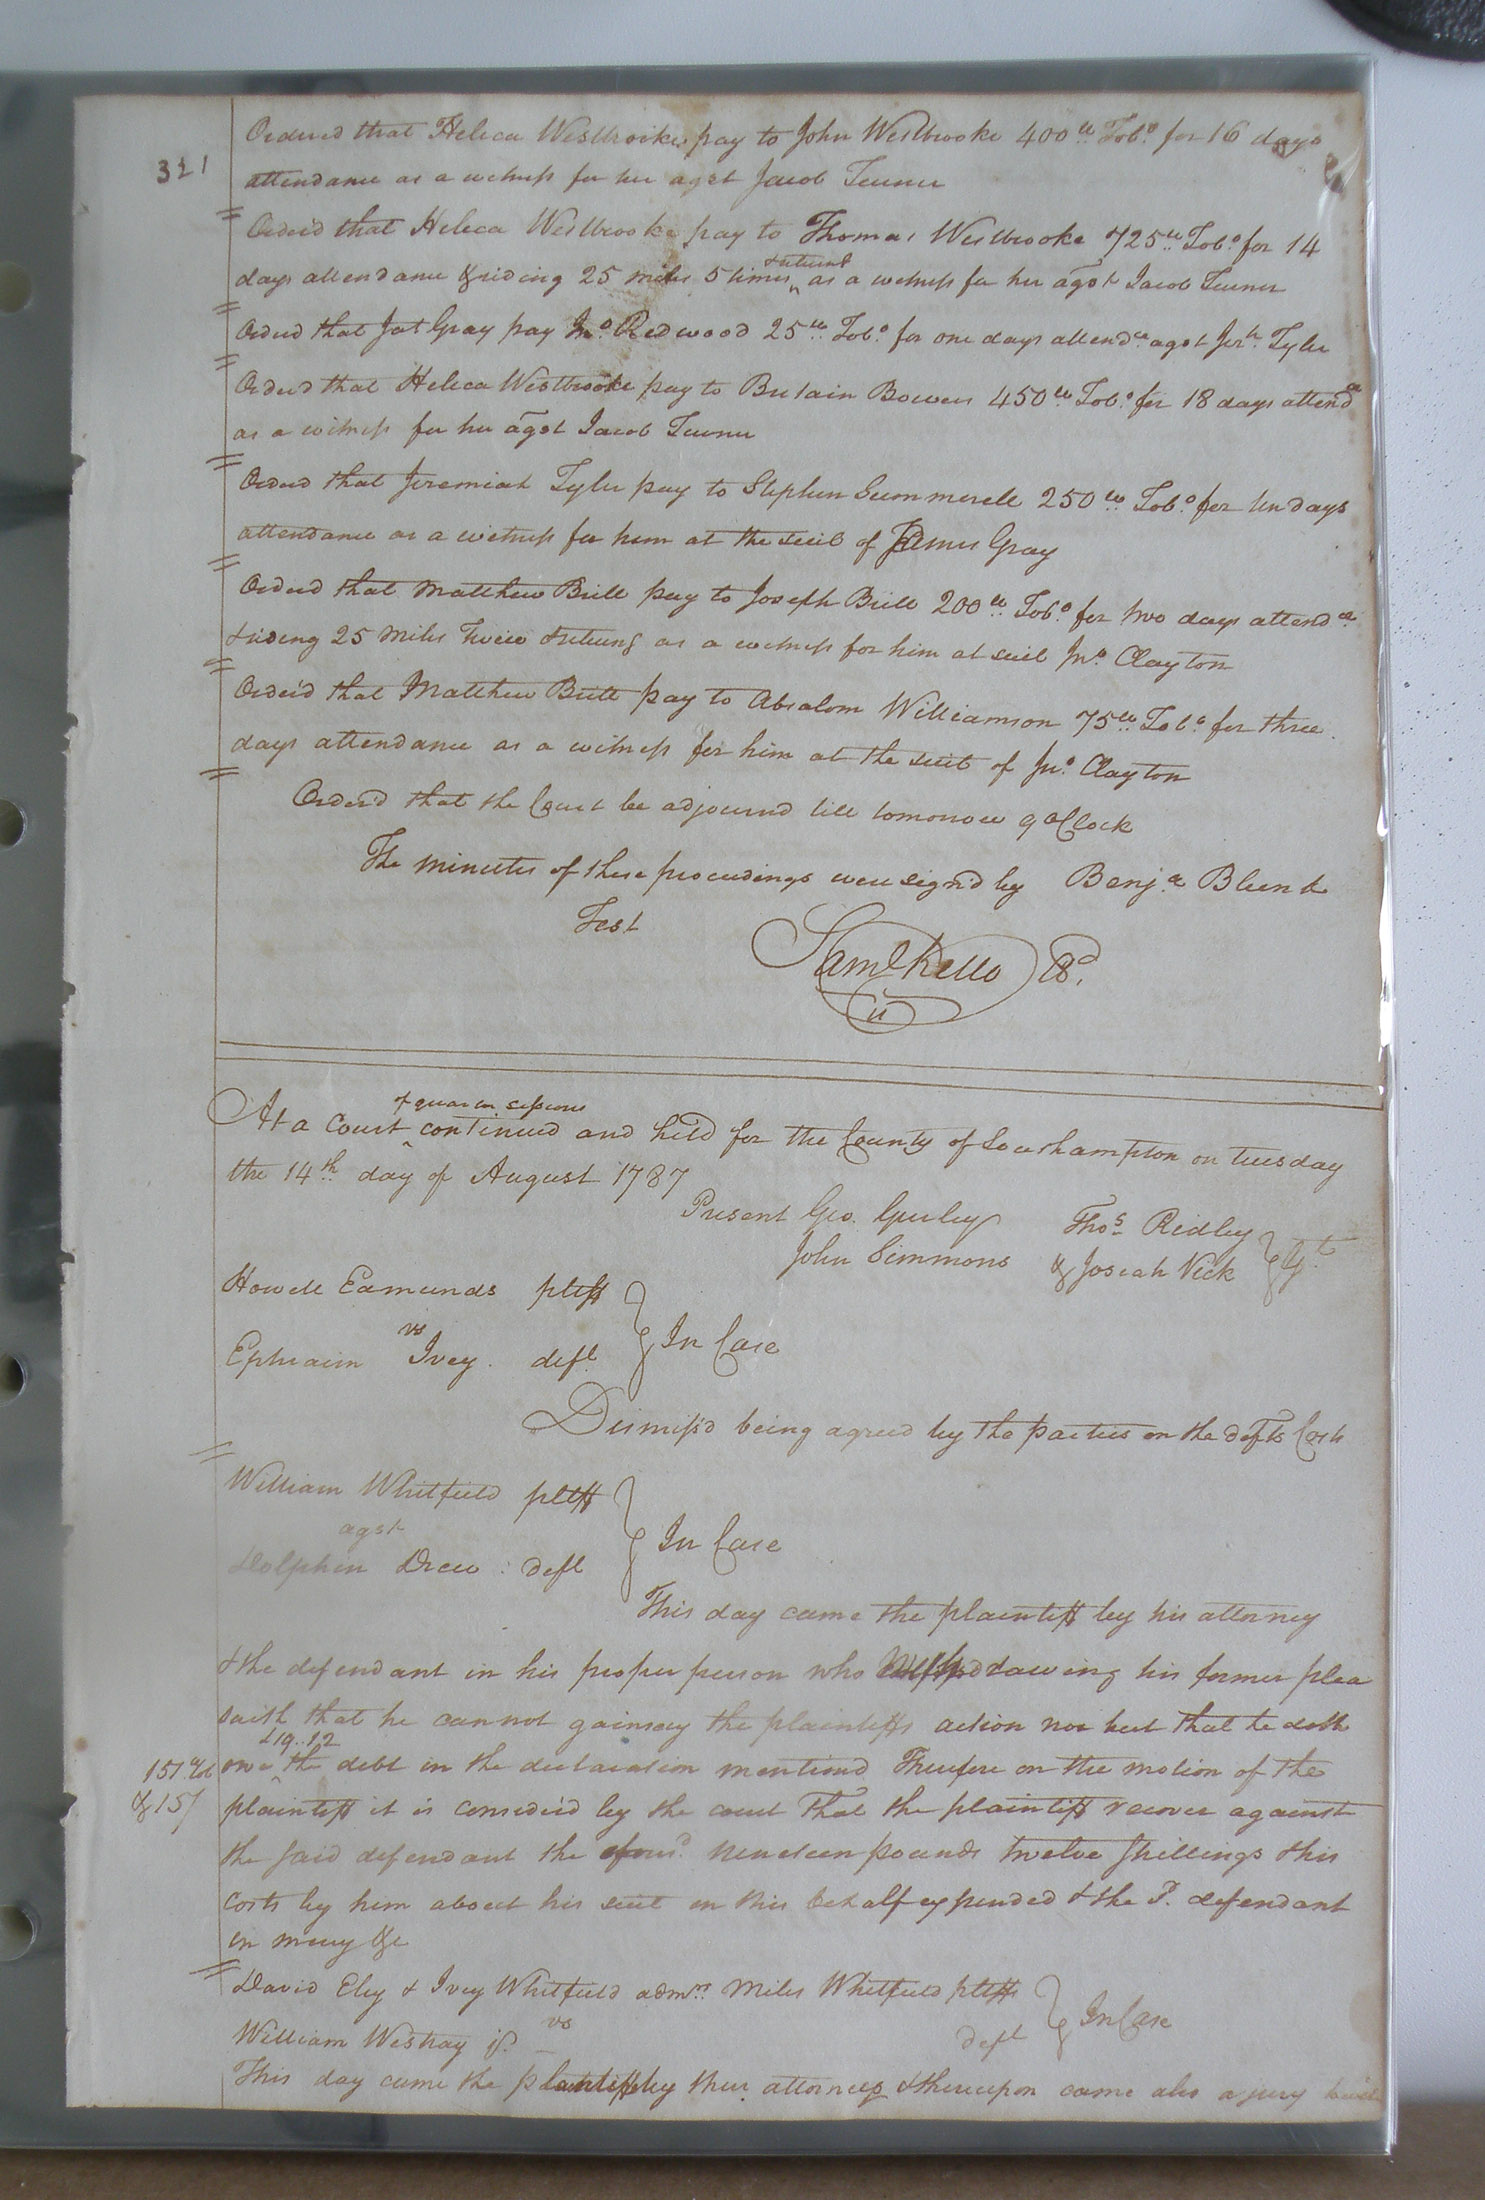 321
Ordered that Heleca Westbrooke pay to John Westbrooke 400 lb Tobo for 16 days
attendance as a witness for her agst Jacob Turner
Orderd that Heleca Westbrooke pay to Thomas Westbrooke 725 lb Tobo for 14
days attendance & riding 25 miles 5 times & returns as a witness for her agst Jacob Turner
Orderd that Jas Gray pay Jno Redwood 25 lb Tobo for one days attendce agst Jerh Tyler
Orderd that Heleca Westbrooke pay to Britain Bowers 450 lb Tobo for 18 days attendce
as a witness for her agst Jacob Turner
Orderd that Jeremiah Tyler pay to Stephen Summerell 250 lb Tobo for ten days
attendance as a witness for him at the suit of James Gray
Orderd that Matthew Britt pay to Joseph Britt 200 lb Tobo for two days attendce
& riding 25 miles twice & returng as a witness for him at suit Jno Clayton
Orderd that Matthew Britt pay to Absalom Williamson 75 lb Tobo for three
days attendance as a witness for him at the suit of Jno Clayton
Orderd that the Court be adjournd till tomorrow 9 oClock
The minutes of these proceedings were signd by Benja Blunt
Test
Saml Kello
At a Court of quarter sessions continued and held for the County of Southampton on tuesday
the 14th day of August 1787
Present Geo. Gurley Thos Ridley
John Simmons & Josiah Vick } Gt
Howell Edmunds pltff
vs } In Case
Ephraim Ivey deft
Dismissd being agreed by the parties on the defts Costs
William Whitfield pltff
agst } In Case
Dolphin Drew deft
This day came the plaintiff by his attorney
& the defendant in his proper person who withdrawing his former plea
saith that he cannot gainsay the plaintiffs action nor but that he doth
£19..12
151 lb owe the debt in the declaration mentiond Therefore on the motion of the
& 15/ plaintiff it is considerd by the court that the plaintiff recover against
the said defendant the aforesd nineteen pounds twelve shillings & his
costs by him about his suit in this behalf expended & the sd defendant
in mercy &c
David Eley & Ivey Whitfield admrs Miles Whitfield pltffs
vs } In Case
William Westray deft
This day came the plaintiffs by their attorney & thereupon came also a jury